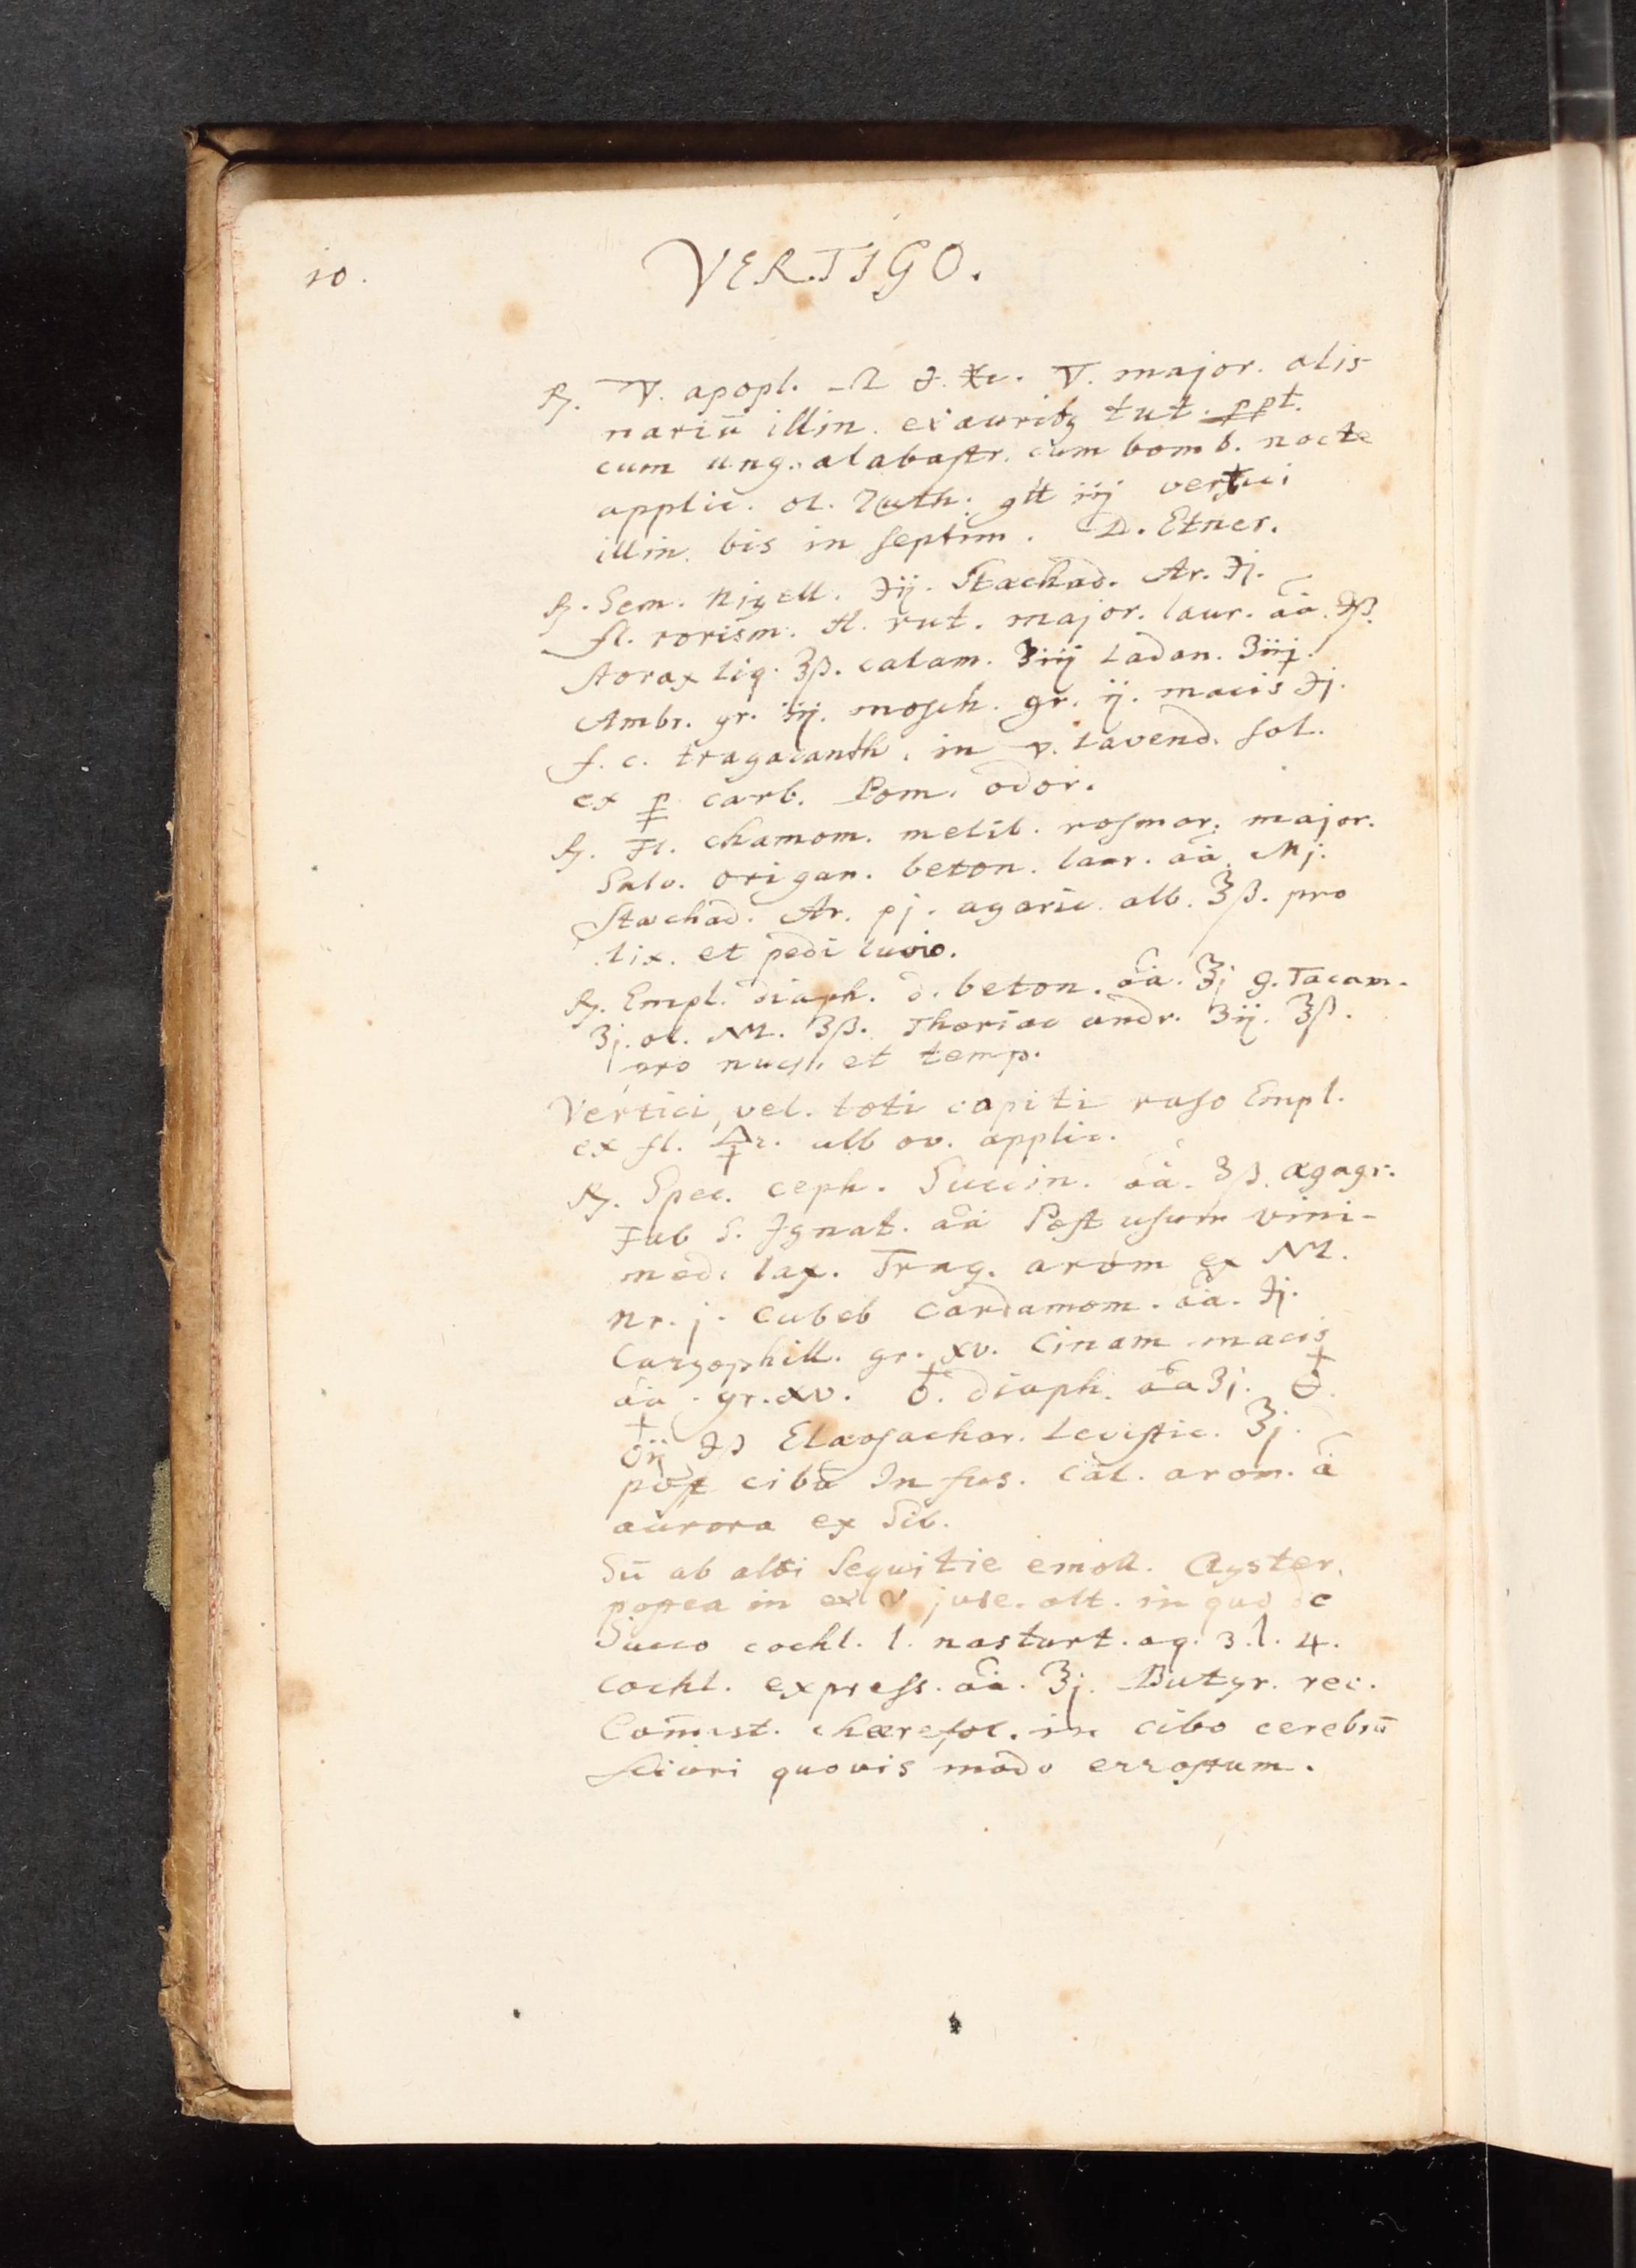 10.
VERTIGO.
℞. ▽. apopl. ♎ ▽. major. alis
nariū illin. ex aurib⁹ tut. ppt.
cum ung. alabastr. cum bomb. nocte
applic. ol. gtt iij vertici
illin. bis in septim. D. Etner.
℞. Sem. Nigell. ℈ij. Stæchad. Ar. ℈j.
fl. rorism. rut. major. laur. āā. ℈ß.
storax liq. ʒß. calam. ʒiij Ladan. ʒiiij.
Ambr. gr. iij. mosch. gr. ij. macis ℈j.
f. c. tragacanth. in ▽. Lavend. sol.
ex carb. Pom. odor.
℞. Fl. chamom. melil. rosmar. major.
Salv. origan. beton. laur. āā. Mj.
Stæchad. Ar. pj. agaric. alb. ℥ß. pro
lix. et pedi luvio.
℞. Empl. diaph. d. beton. āā. ℥j g. Tacam.
ʒj. ol. NM. ʒß. Theriac andr. ʒij. ℥ß.
pro nuch. et temp.
Vertici, vel. toti capiti raso Empl.
ex fl. 🜍r. alb ov. applic.
℞. Spec. ceph. Succin. āā. ʒß. ægagr.
Fab S. Ignat. āā Post usum vini-
med. lax. Trag. arom ex NM.
Nr. j. Cubeb Cardamom. āā. ℈j.
Caryophill. gr. xv. Cinam macis
āā. gr. xv. ♁. diaph. āā ʒj.
℈ß Elæosachar. Levistic. ℥j.
post cibū Infus. Cal. arom. à
aurora ex
Sū ab alvi Segnitie emoll. Clyster.
postea in ex jusc. alt. in quo de
Succo cochl. l. nasturt. aq. 3. l. 4.
cochl. express. āā. ℥j. Butyr. rec.
Comist. chærefol. in cibo cerebrū
sciuri quovis modo errostum.